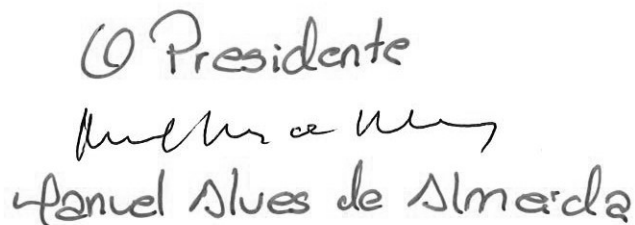 O Presidente
Manuel Alves de Almeida